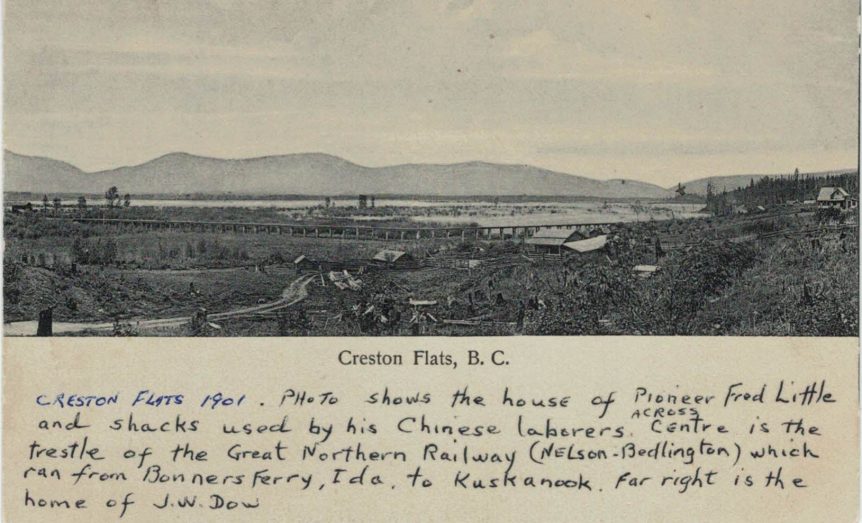 Creston Flats, B. C.
CRESTON FLATS 1901. PHOTO shows the house of Pioneer Fred Little
and shacks used by his Chinese laborers. ACROSS Centre is the
trestle of the Great Northern Railway (NELSON-Bedlington) which
ran from Bonners Ferry, Ida. to Kuskanook. Far right is the
home of J.W. Dow